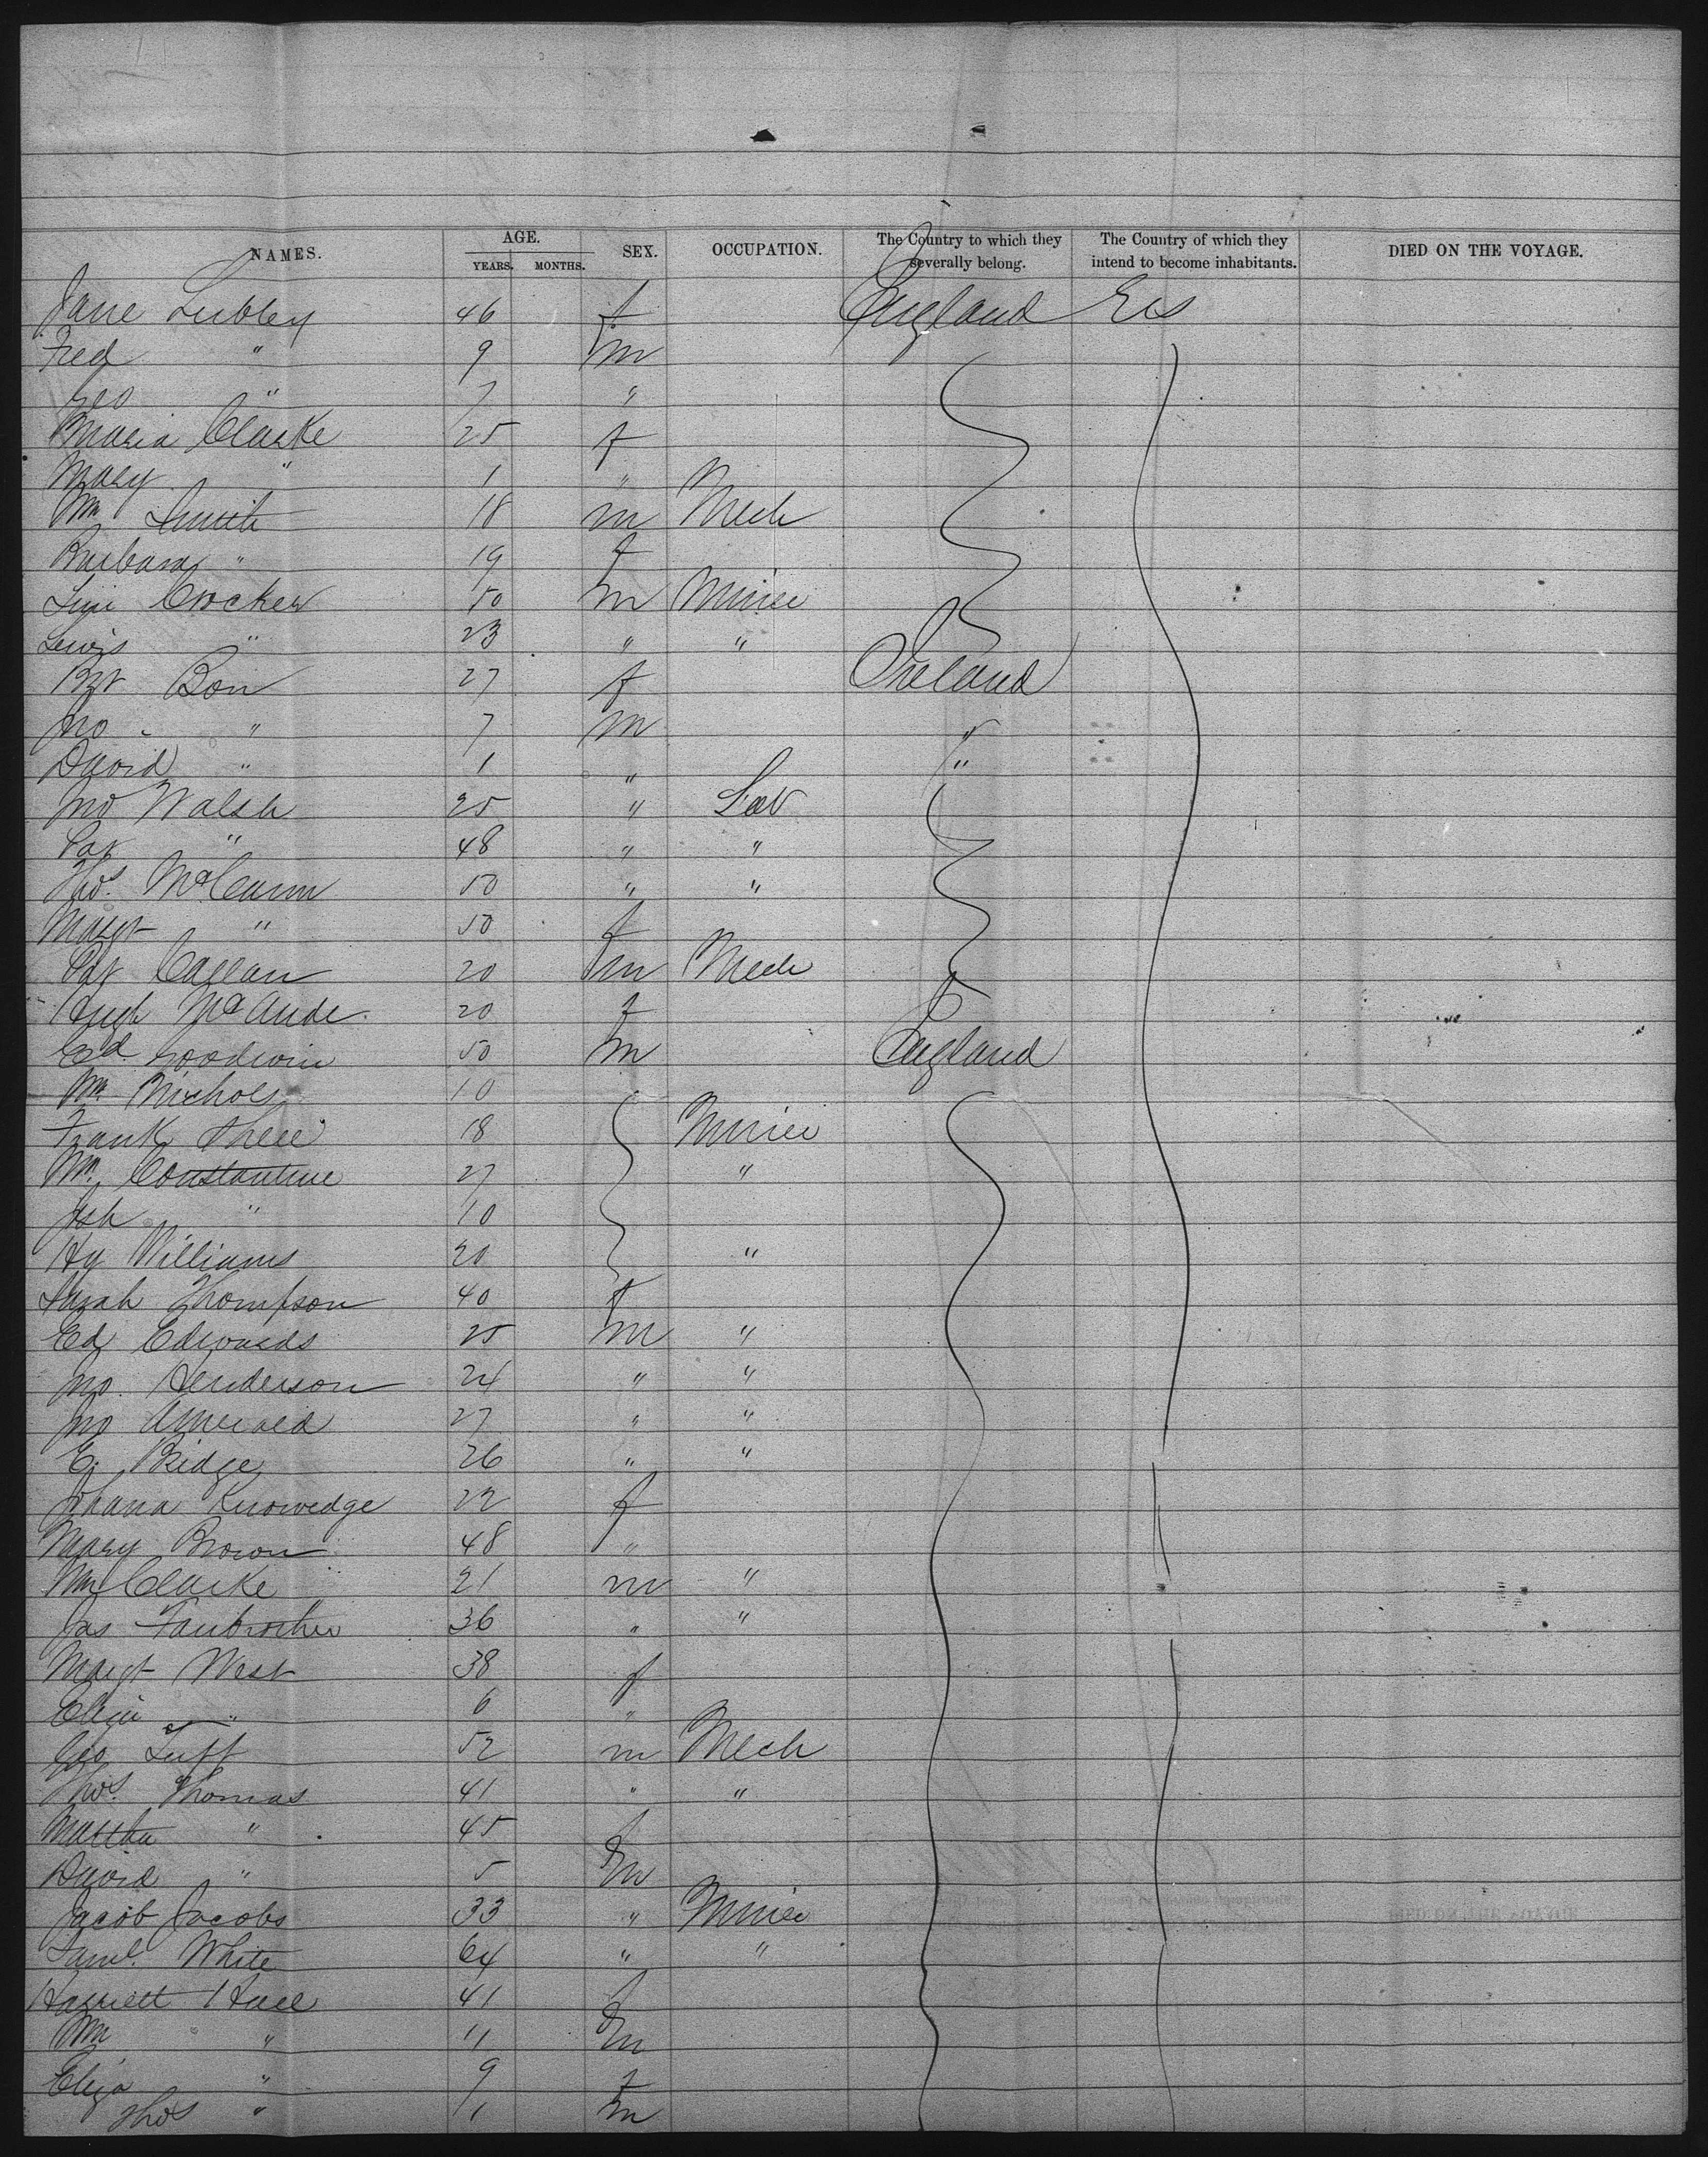 NAMES. AGE. YEARS. MONTHS. SEX. OCCUPATION. The Country to which they severally belong. The Country of which they intend to become inhabitants. DIED ON THE VOYAGE.
Jane Lubley 46 f England
Fred " 9 m
Geo " 7 "
Maria Clarke 25 f
Mary " 1 "
Wm Smith 18 m Mech
Barbara " 19 f
Crocker 50 m Miner
Lewis " 23 " "
Bon 27 f Ireland
Jno " 7 m "
David " 1 " "
Jno Walsh 25 " Lab
Pat " 48 " "
Thos. McCann 50 " "
Margt " 50 f
Pat Callan 20 m Mech
Hugh McAnde 20 f
Ed Goodwin 50 m England
Wm Nichols 10
Frank 18 Miner
Wm Constantine 27 "
Jsh " 10
Hy Williams 20 "
Sarah Thompson 40 f
Ed Edwards 25 m "
Jno. Henderson 24 " "
Jno 27 " "
E. Bridge 26 " "
Johana Knowedge 22 f
Mary Brown 48 "
Wm Clarke 21 m "
Jas Fairbrother 36 " "
Margt West 38 f
" 6 "
Geo Tuft 52 m Mech
Thos. Thomas 41 " "
Martha " 45 f
David " 5 m
Jacob Jacobs 33 " Miner
Saml. White 64 " "
Harriett Hall 41 f
Wm " 11 m
Eliza " 9 f
Thos " 1 m